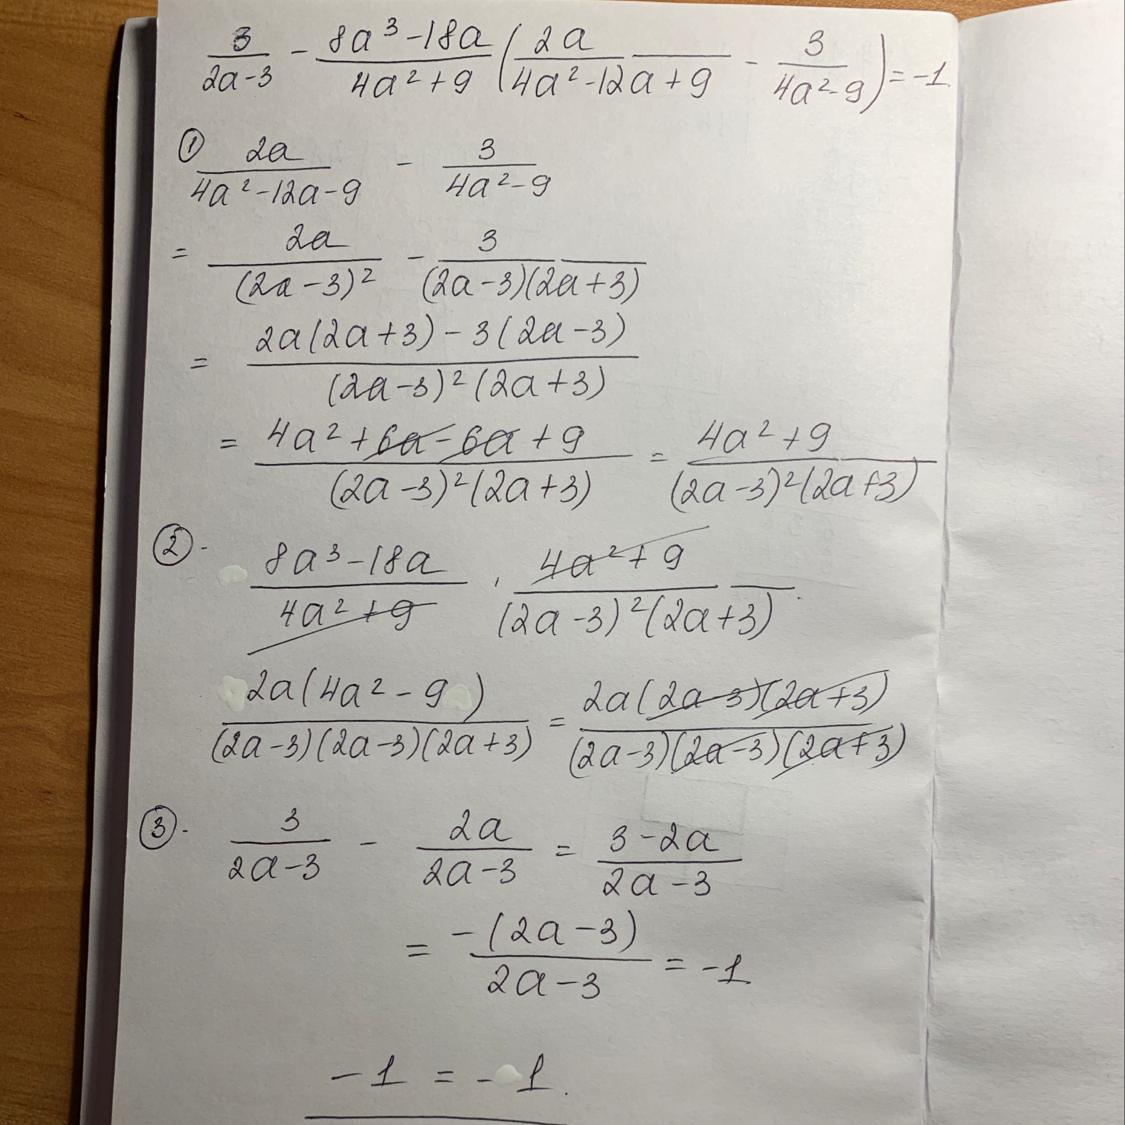 3/(2a-3) - (8a³-18a)/(4a²+9) (2a/(4a²-12a+9) - 3/(4a²-9)) = -1
① 2a/(4a²-12a-9) - 3/(4a²-9)
= 2a/(2a-3)² - 3/((2a-3)(2a+3))
= (2a(2a+3)-3(2a-3))/((2a-3)²(2a+3))
= (4a²+6a-6a+9)/((2a-3)²(2a+3)) = (4a²+9)/((2a-3)²(2a+3))
②. (8a³-18a)/(4a²+9) · (4a²+9)/((2a-3)²(2a+3)).
2a(4a²-9)/((2a-3)(2a-3)(2a+3)) = 2a(2a-3)(2a+3)/((2a-3)(2a-3)(2a+3))
③. 3/(2a-3) - 2a/(2a-3) = (3-2a)/(2a-3)
= -(2a-3)/(2a-3) = -1
-1 = -1.